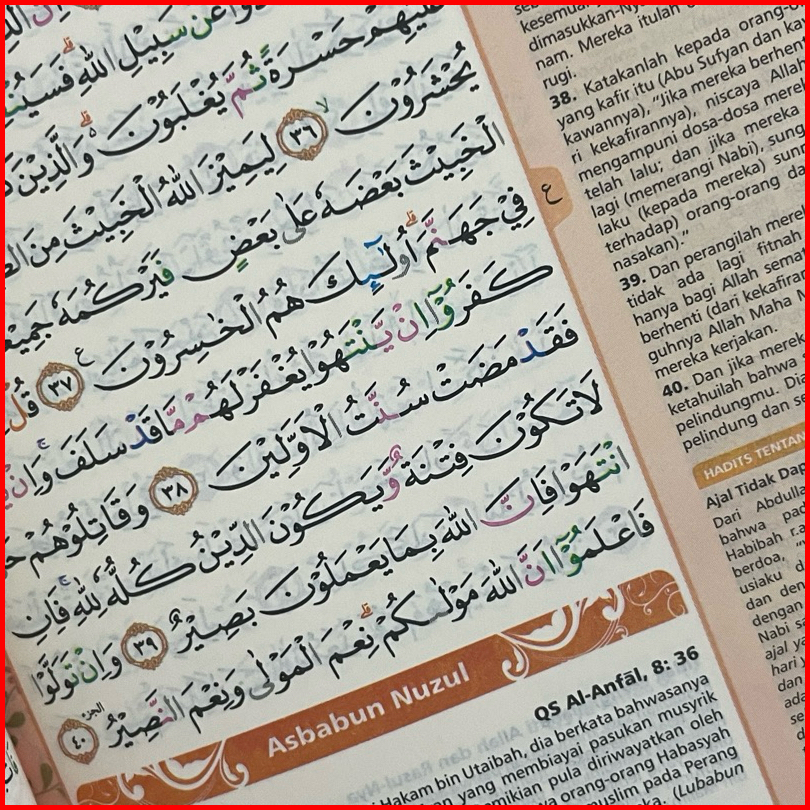 عَنْ سَبِيْلِ اللّٰهِ ۗفَسَيُنْ
عَلَيْهِمْ حَسْرَةً ثُمَّ يُغْلَبُوْنَ ەۗ وَالَّذِيْنَ
يُحْشَرُوْنَ ۙ ٣٦ لِيَمِيْزَ اللّٰهُ الْخَبِيْثَ مِنَ
الْخَبِيْثَ بَعْضَهٗ عَلٰى بَعْضٍ فَيَرْكُمَهٗ جَمِيْعًا
فِيْ جَهَنَّمَۗ اُولٰۤىِٕكَ هُمُ الْخٰسِرُوْنَ ࣖ ٣٧ قُلْ
كَفَرُوْٓا اِنْ يَّنْتَهُوْا يُغْفَرْ لَهُمْ مَّا قَدْ سَلَفَۚ وَاِنْ
فَقَدْ مَضَتْ سُنَّتُ الْاَوَّلِيْنَ ٣٨ وَقَاتِلُوْهُمْ
لَا تَكُوْنَ فِتْنَةٌ وَّيَكُوْنَ الدِّيْنُ كُلُّهٗ لِلّٰهِۚ فَاِنِ
انْتَهَوْا فَاِنَّ اللّٰهَ بِمَا يَعْمَلُوْنَ بَصِيْرٌ ٣٩ وَاِنْ تَوَلَّوْا
فَاعْلَمُوْٓا اَنَّ اللّٰهَ مَوْلٰىكُمْ ۗنِعْمَ الْمَوْلٰى وَنِعْمَ النَّصِيْرُ ٤٠
الجزء
ع
Asbabun Nuzul
QS Al-Anfāl, 8: 36
Hakam bin Utaibah, dia berkata bahwasanya
yang membiayai pasukan musyrik
demikian pula diriwayatkan oleh
orang-orang Habasyah
muslim pada Perang
(Lubabun
kesemua
dimasukkan-Ny
nam. Mereka itulah
rugi.
38. Katakanlah kepada orang-o
yang kafir itu (Abu Sufyan dan ka
kawannya), "Jika mereka berhen
ri kekafirannya), niscaya Allah
mengampuni dosa-dosa merek
telah lalu; dan jika mereka
lagi (memerangi Nabi), sung
laku (kepada mereka) sunn
terhadap) orang-orang da
nasakan)."
39. Dan perangilah mere
tidak ada lagi fitnah
hanya bagi Allah sema
berhenti (dari kekafira
guhnya Allah Maha M
mereka kerjakan.
40. Dan jika merek
ketahuilah bahwa
pelindungmu. Dia
pelindung dan se
HADITS TENTAN
Ajal Tidak Dap
Dari Abdulla
bahwa pad
Habibah r.a
berdoa, "
usiaku d
dan den
dengan
Nabi sa
ajal ya
hari